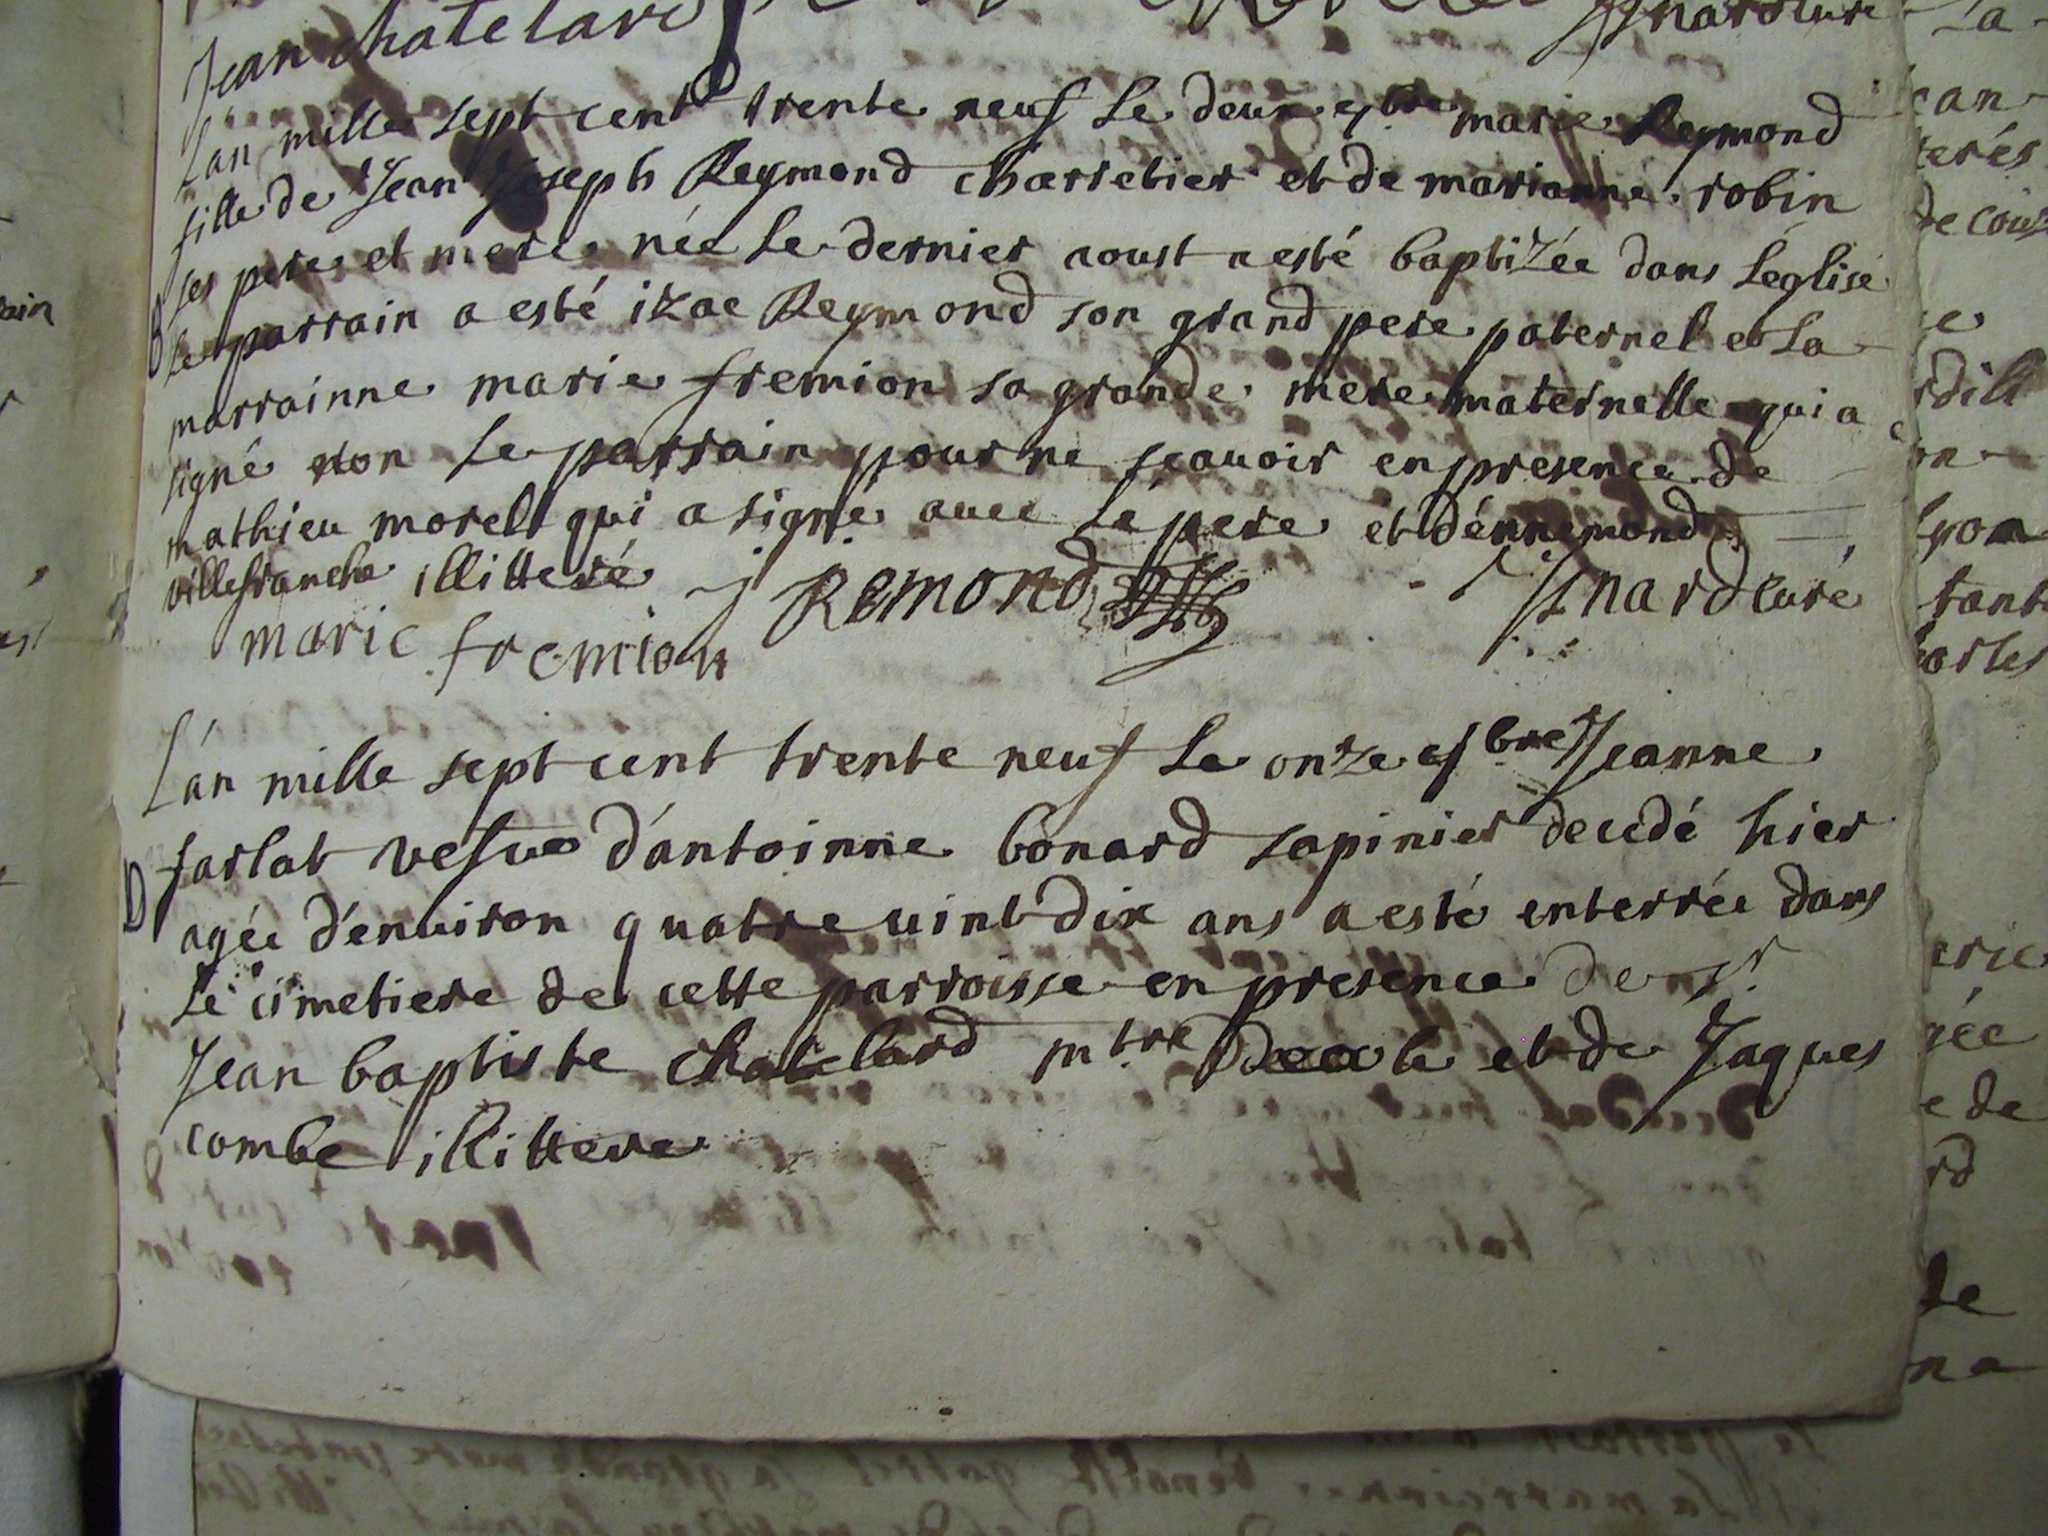 Jean chatelard
L'an mille sept cent trente neuf le deux 7bre marie Reymond
fille de Jean Joseph Reymond charretier et de marianne robin
ses pere et mere née le dernier aoust a esté baptizée dans l'église
B le parrain a esté izac Reymond son grand pere paternel et la
marrainne marie fremion sa grande mere maternelle qui a
signé et non le parrain pour ne scavoir en presence de
mathieu morel qui a signé avec le pere et d'ennemond
villefranche illitteré J Remond Inard curé
marie fremion
L'an mille sept cent trente neuf le onze 7bre Jeanne
farlat vefue d'antoinne bonard sapinier decedé hier
D agée d'enuiron quatre uint dix ans a esté enterrée dans
le cimetiere de cette parroisse en presence de sr
Jean baptiste chatelard mtre et de Jaques
combe illittere